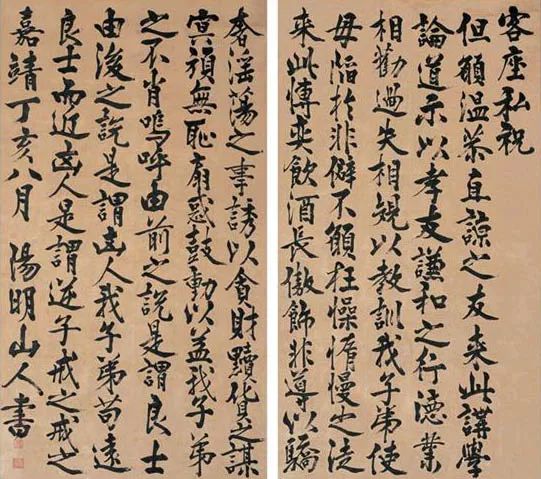 客座私祝
但願溫恭直諒之友来此講學
論道示以孝友謙和之行德業
相勸過失相規以教訓我子弟使
毋陷於非僻不願狂懆惰慢之徒
来此愽奕飲酒長傲飾非導以驕
奢淫蕩之事誘以貪財黷貨之謀
冥頑無恥扇惑鼓動以益我子弟
之不肖嗚呼由前之說是謂良士
由後之說是謂凶人我子弟苟遠
良士而近凶人是謂逆子戒之戒之
嘉靖丁亥八月 陽明山人書